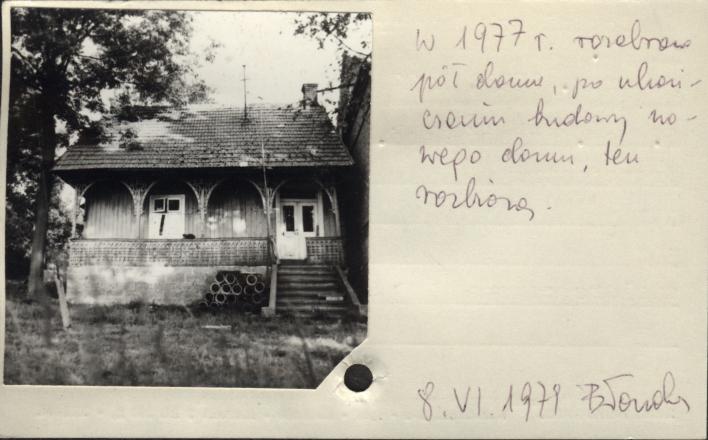 W 1977 r. rozebrano
pół domu, po ukoń-
czeniu budowy no-
wego domu, ten
rozbiorą.
8. VI. 1979